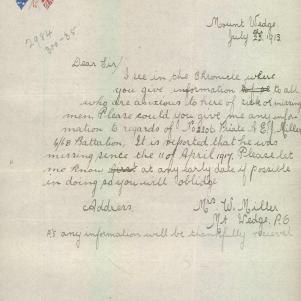 2984
300-35
Mount Wedge.
July 23. 1913.
Dear Sir/
I see in the Chronicle where
you give information to all
who are abxious to here of sick or missing
men. Please could you give me any infor-
mation to regards of No Private E J Miller
Battalion. It is reported that he was
missing since the 11 of April 1917. Please let
me know at any early date if possible
in doing so you will oblidge
Address. Mrs W. Miller
Mt Wedge. P.O
PS any information will be thankfully recieved